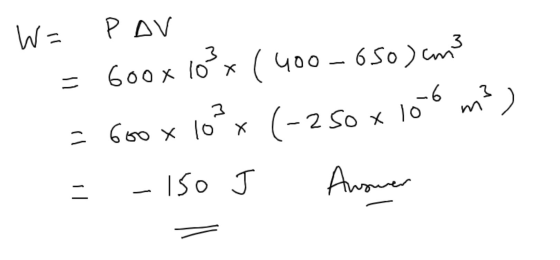 W = P ΔV
= 600 x 10³ x (400 - 650) cm³
= 600 x 10³ x (-250 x 10⁻⁶ m³)
= - 150 J Answer